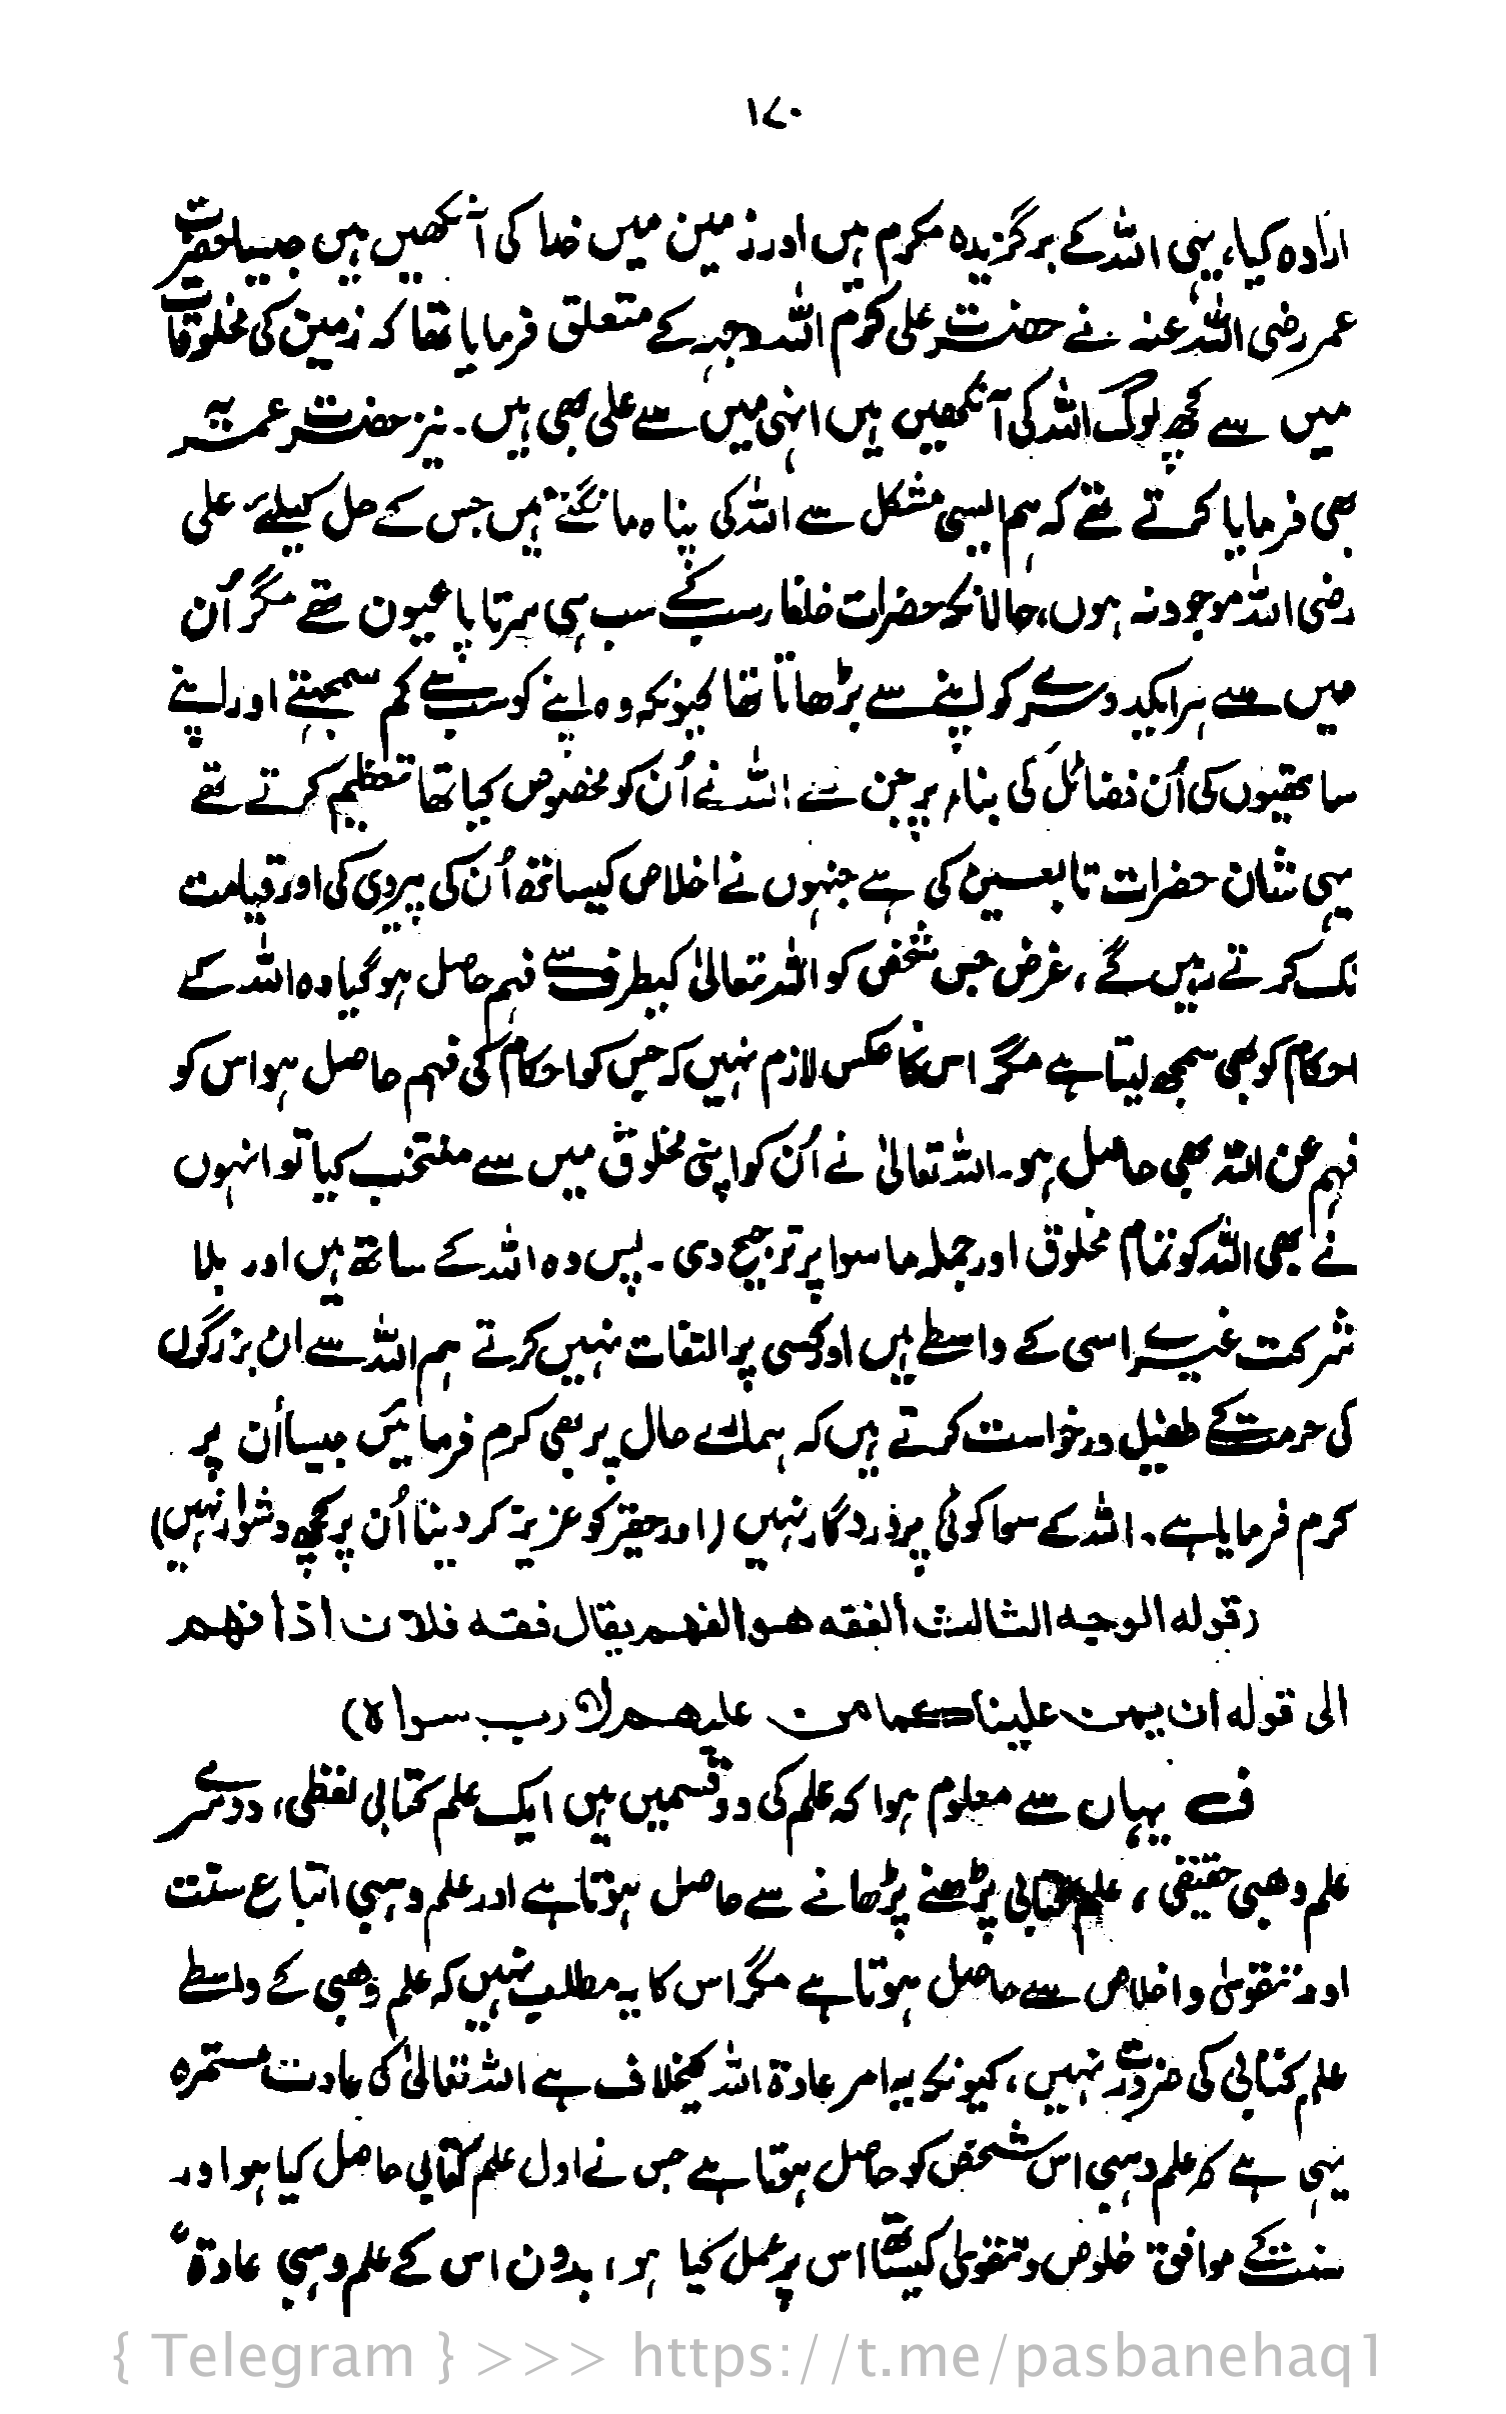 ۱۷۰
ارادہ کیا، یہی اللہ کے برگزیدہ مکرم ہیں اور زمین میں خدا کی آنکھیں ہیں جیسا حضرت
عمر رضی اللہ عنہ نے حضرت علی کرم اللہ وجہہ کے متعلق فرمایا تھا کہ زمین کی مخلوقات
میں سے کچھ لوگ اللہ کی آنکھیں ہیں انہی میں سے علی بھی ہیں۔ نیز حضرت عمرؓ یہ
بھی فرمایا کرتے تھے کہ ہم ایسی مشکل سے اللہ کی پناہ مانگتے ہیں جس کے حل کیلئے علی
رضی اللہ موجود نہ ہوں، حالانکہ حضرات خلفاء سب کے سب ہی سرتاپا عیون تھے مگر اُن
میں سے ہر ایک دوسرے کو اپنے سے بڑھاتا تھا کیونکہ وہ اپنے کو سب سے کم سمجھتے اور اپنے
ساتھیوں کی اُن فضائل کی بناء پر جن سے اللہ نے اُن کو مخصوص کیا تھا تعظیم کرتے تھے
یہی شان حضرات تابعین کی ہے جنہوں نے اخلاص کیساتھ اُن کی پیروی کی اور قیامت
تک کرتے رہیں گے، غرض جس شخص کو اللہ تعالیٰ کیطرف سے فہم حاصل ہو گیا وہ اللہ کے
احکام کو بھی سمجھ لیتا ہے مگر اس کا عکس لازم نہیں کہ جس کو احکام کی فہم حاصل ہو اس کو
فہم عن اللہ بھی حاصل ہو۔ اللہ تعالیٰ نے اُن کو اپنی مخلوق میں سے منتخب کیا تو انہوں
نے بھی اللہ کو تمام مخلوق اور جملہ ما سوا پر ترجیح دی۔ پس وہ اللہ کے ساتھ ہیں اور بلا
شرکت غیرے اسی کے واسطے ہیں اور کسی پر التفات نہیں کرتے ہم اللہ سے ان بزرگوں
کی حرمت کے طفیل درخواست کرتے ہیں کہ ہمارے حال پر بھی کرم فرمائیں جیسا اُن پر
کرم فرمایا ہے۔ اللہ کے سوا کوئی پروردگار نہیں (اور حقیر کو عزیز کر دینا اُن پر کچھ دشوار نہیں)
(قوله الوجه الثالث الفقه هو الفهم يقال فقه فلان اذا فهم
الی قوله ان يمن علينا كما من عليهم لا رب سواه)
ف یہاں سے معلوم ہوا کہ علم کی دو قسمیں ہیں ایک علم کتابی لفظی، دوسرے
علم وھبی حقیقی، علم کتابی پڑھنے پڑھانے سے حاصل ہوتا ہے اور علم وہبی اتباع سنت
اور تقویٰ و اخلاص سے حاصل ہوتا ہے مگر اس کا یہ مطلب نہیں کہ علم وھبی کے واسطے
علم کتابی کی ضرورت نہیں، کیونکہ یہ امر عادۃ اللہ کیخلاف ہے اللہ تعالیٰ کی عادت مستمرہ
یہی ہے کہ علم وہبی اس شخص کو حاصل ہوتا ہے جس نے اول علم کتابی حاصل کیا ہو اور
سنت کے موافق خلوص و تقویٰ کیساتھ اس پر عمل کیا ہو، بدون اس کے علم وہبی عادۃً
{ Telegram } >>> https://t.me/pasbanehaq1